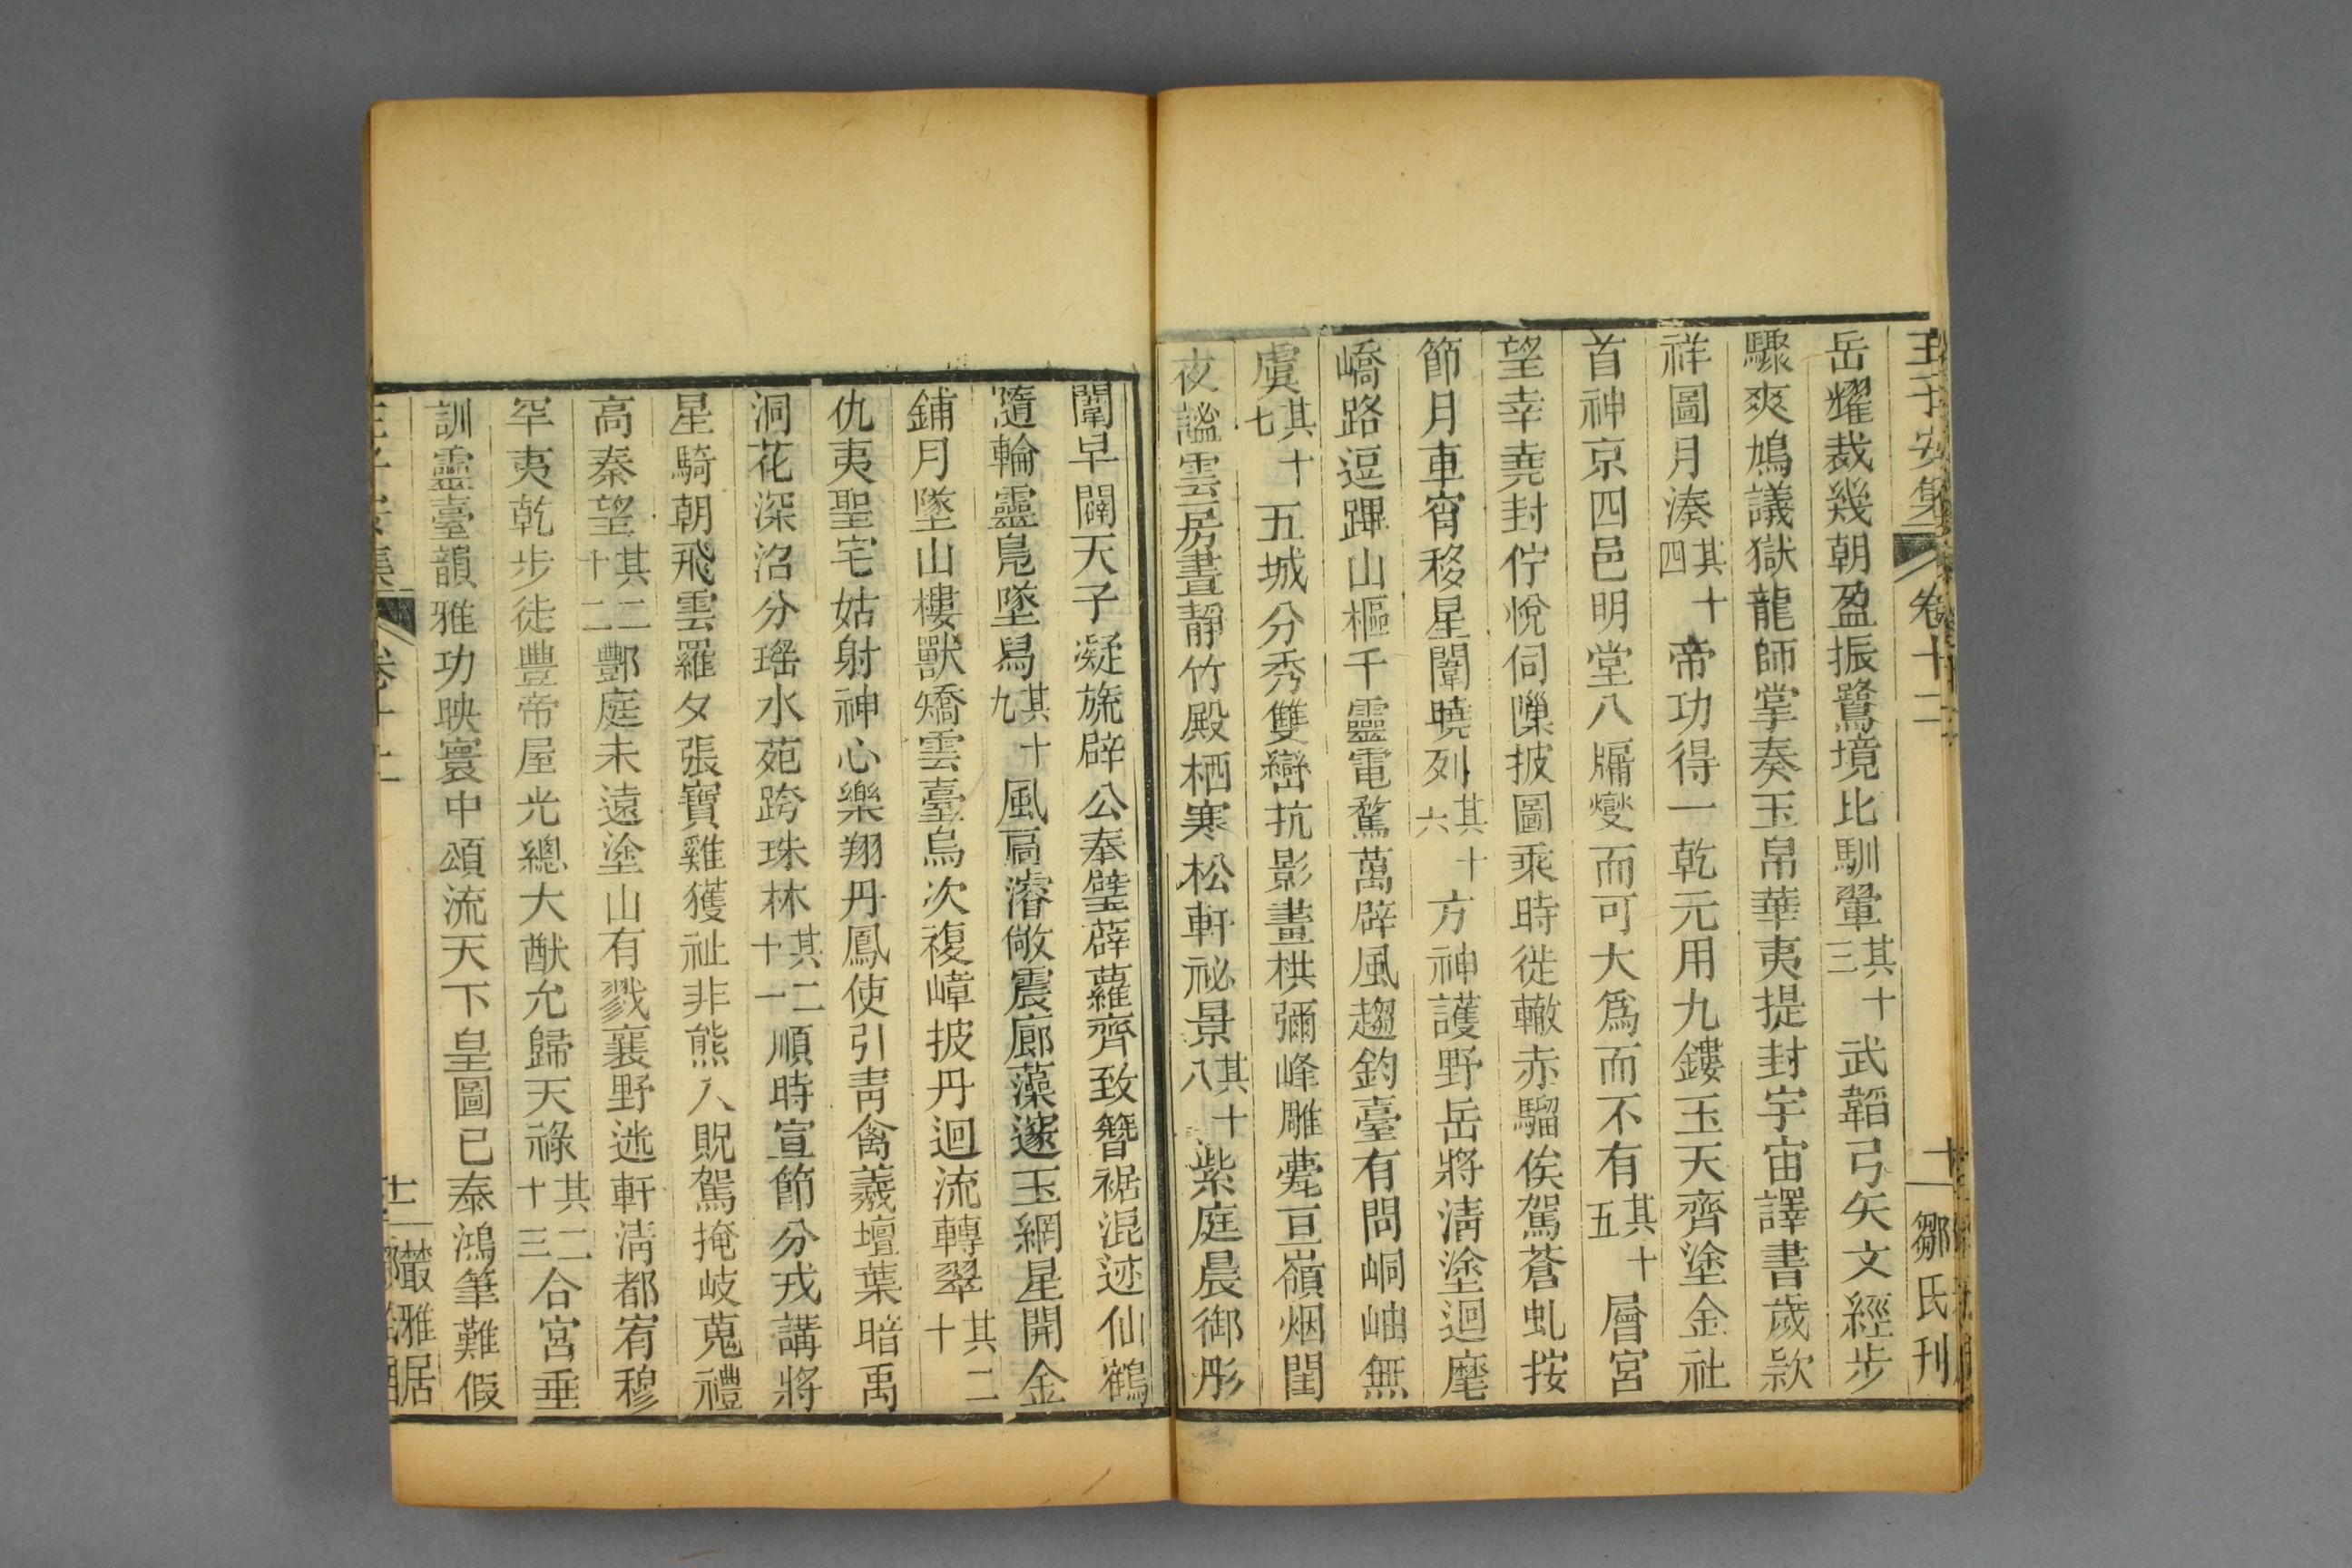 王子安集 卷十二 十一 鄒氏刊
岳耀裁幾朝盈振鷺境比馴翬其十三武韜弓矢文經步
驟爽鳩議獄龍師掌奏玉帛華夷提封宇宙譯書歲款
祥圖月湊其十四帝功得一乾元用九鏤玉天齊塗金社
首神京四邑明堂八牖變而可大爲而不有其十五層宮
望幸堯封佇悅伺㗼披圖乘時徙轍赤騮俟駕蒼虬按
節月車宵移星闈曉列其十六方神護野岳將清塗迴麾
嶠路逗蹕山樞千靈電騖萬辟風趨釣臺有問峒岫無
虞其十七五城分秀雙巒抗影畫栱彌峰雕甍亘嶺烟閨
夜謐雲房晝靜竹殿栖寒松軒祕景其十八紫庭晨御彤
闈早闢天子凝旒辟公奉璧薜蘿齊致簪裾混迹仙鶴
隨輪靈鳧墜舄其十九風扃濬敞震廊藻邃玉網星開金
鋪月墜山樓獸矯雲臺烏次複嶂披丹迴流轉翠其二十
仇夷聖宅姑射神心樂翔丹鳳使引青禽羲壇葉暗禹
洞花深沼分瑤水苑跨珠林其二十一順時宣節分戎講將
星騎朝飛雲羅夕張寶雞獲祉非熊入貺駕掩岐蒐禮
高秦望其二十二酆庭未遠塗山有戮襄野迷軒清都宥穆
罕夷乾步徒豐帝屋光總大猷允歸天祿其二十三合宮垂
訓靈臺韻雅功映寰中頌流天下皇圖已泰鴻筆難假
王子安集 卷十二 十二